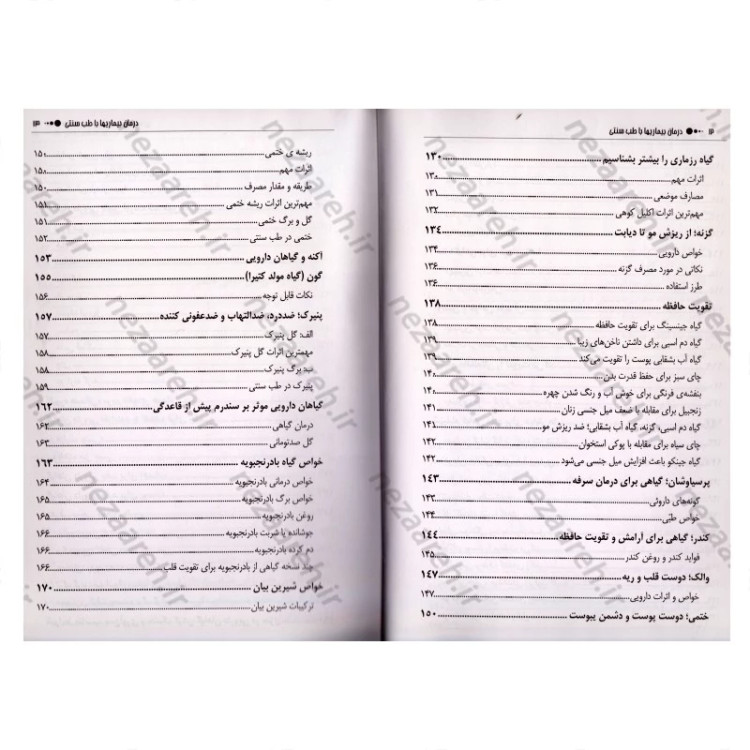 ۱۲ درمان بیماریها با طب سنتی
گیاه رزماری را بیشتر بشناسیم ۱۳۰
اثرات مهم ۱۳۰
مصارف موضعی ۱۳۱
مهم‌ترین اثرات اکلیل کوهی ۱۳۲
گزنه؛ از ریزش مو تا دیابت ۱۳۴
خواص دارویی ۱۳۴
نکاتی در مورد مصرف گزنه ۱۳۶
طرز استفاده ۱۳۶
تقویت حافظه ۱۳۸
گیاه جینسینگ برای تقویت حافظه ۱۳۸
گیاه دم اسبی برای داشتن ناخن‌های زیبا ۱۳۹
گیاه آب بشقابی پوست را تقویت می‌کند ۱۳۹
چای سبز برای حفظ قدرت بدن ۱۴۰
بنفشه‌ی فرنگی برای خوش آب و رنگ شدن چهره ۱۴۰
زنجبیل برای مقابله با ضعف میل جنسی زنان ۱۴۱
گیاه دم اسبی، گزنه، گیاه آب بشقابی؛ ضد ریزش مو ۱۴۱
چای سیاه برای مقابله با پوکی استخوان ۱۴۲
گیاه جینکو باعث افزایش میل جنسی می‌شود ۱۴۲
پرسیاوشان؛ گیاهی برای درمان سرفه ۱۴۳
گونه‌های داروئی ۱۴۳
خواص طبّی ۱۴۳
کندر؛ گیاهی برای آرامش و تقویت حافظه ۱۴۴
فواید کندر و روغن کندر ۱۴۵
والک؛ دوست قلب و ریه ۱۴۷
خواص و اثرات دارویی ۱۴۷
ختمی؛ دوست پوست و دشمن یبوست ۱۵۰
درمان بیماریها با طب سنتی ۱۳
ریشه ی ختمی ۱۵۰
اثرات مهم ۱۵۰
طریقه و مقدار مصرف ۱۵۰
مهم‌ترین اثرات ریشه ختمی ۱۵۱
گل و برگ ختمی ۱۵۱
ختمی در طب سنتی ۱۵۲
آکنه و گیاهان دارویی ۱۵۳
گون (گیاه مولد کتیرا) ۱۵۵
نکات قابل توجه ۱۵۶
پنیرک؛ ضددرد، ضدالتهاب و ضدعفونی کننده ۱۵۷
الف: گل پنیرک ۱۵۸
مهمترین اثرات گل پنیرک ۱۵۸
ب: برگ پنیرک ۱۵۸
پنیرک در طب سنتی ۱۵۹
گیاهان دارویی موثر بر سندرم پیش از قاعدگی ۱۶۲
درمان گیاهی ۱۶۲
گل صدتومانی ۱۶۳
خواص گیاه بادرنجبویه ۱۶۳
خواص درمانی بادرنجبویه ۱۶۴
خواص برگ بادرنجبویه ۱۶۵
روغن بادرنجبویه ۱۶۵
جوشانده یا شربت بادرنجبویه ۱۶۶
دم کرده بادرنجبویه ۱۶۶
چند نسخه گیاهی از بادرنجبویه برای تقویت قلب ۱۶۶
خواص شیرین بیان ۱۷۰
ترکیبات شیرین بیان ۱۷۰
nezaareh.ir